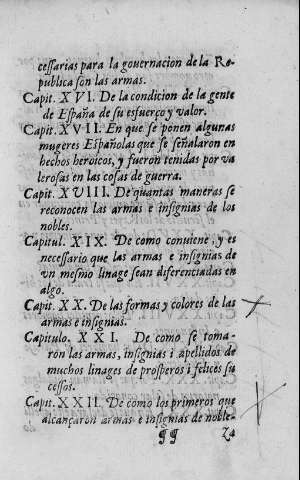 cessarias para la governacion de la Re-
publica son las armas.
Capit. XVI. De la condicion de la gente
de España de su esfuerço y valor.
Capit. XVII. En que se ponen algunas
mugeres Españolas que se señalaron en
hechos heroicos, y fueron tenidas por va
lerosas en las cosas de guerra.
Capit. XVIII. De quantas maneras se
reconocen las armas e insignias de los
nobles.
Capitul. XIX. De como conviene, y es
necessario que las armas e insignias de
vn mesmo linage sean diferentiadas en
algo.
Capit. XX. De las formas y colores de las
armas e insignias.
Capitulo. XXI. De como se toma-
ron las armas, insignias i apellidos de
muchos linages de prosperos i felices su
cessos.
Capit. XXII. De como los primeros que
alcançaron armas e insignias de noble-
¶¶ Za